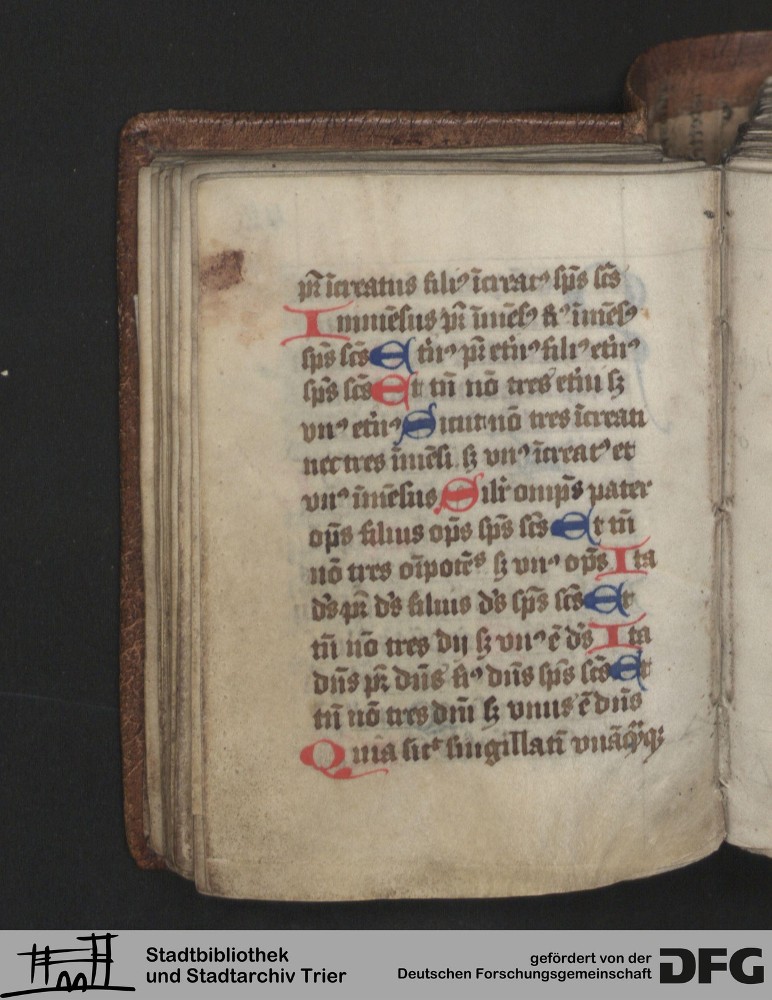 pr̄ īcreatus fili⁹ īcreat⁹ sps̄ scs̄
Immēsus pr̄ īmēs⁹ fi⁹ īmēs⁹
sps̄ scs̄ Etn̄⁹ pr̄ etn̄⁹ fili⁹ etn̄⁹
sps̄ scs̄ Et tn̄ nō tres etn̄i sꝫ
vn⁹ etn̄⁹ Sicut nō tres īcreati
nec tres īmēsi sꝫ vn⁹ īcreat⁹ et
vn⁹ īmēsus Silr̄ omīps̄ pater
ops̄ filius ops̄ sps̄ scs̄ Et tn̄
nō tres oīpotēs sꝫ vn⁹ ops̄ Ita
ds̄ pr̄ ds̄ filius ds̄ sps̄ scs̄ Et
tn̄ nō tres dij sꝫ vn⁹ ē ds̄ Ita
dn̄s pr̄ dn̄s fi⁹ dn̄s sps̄ scs̄ Et
tn̄ nō tres dn̄i sꝫ vnus ē dn̄s
Quia sict singillatī vnāq̄qꝫ
Stadtbibliothek
und Stadtarchiv Trier
gefördert von der
Deutschen Forschungsgemeinschaft
DFG